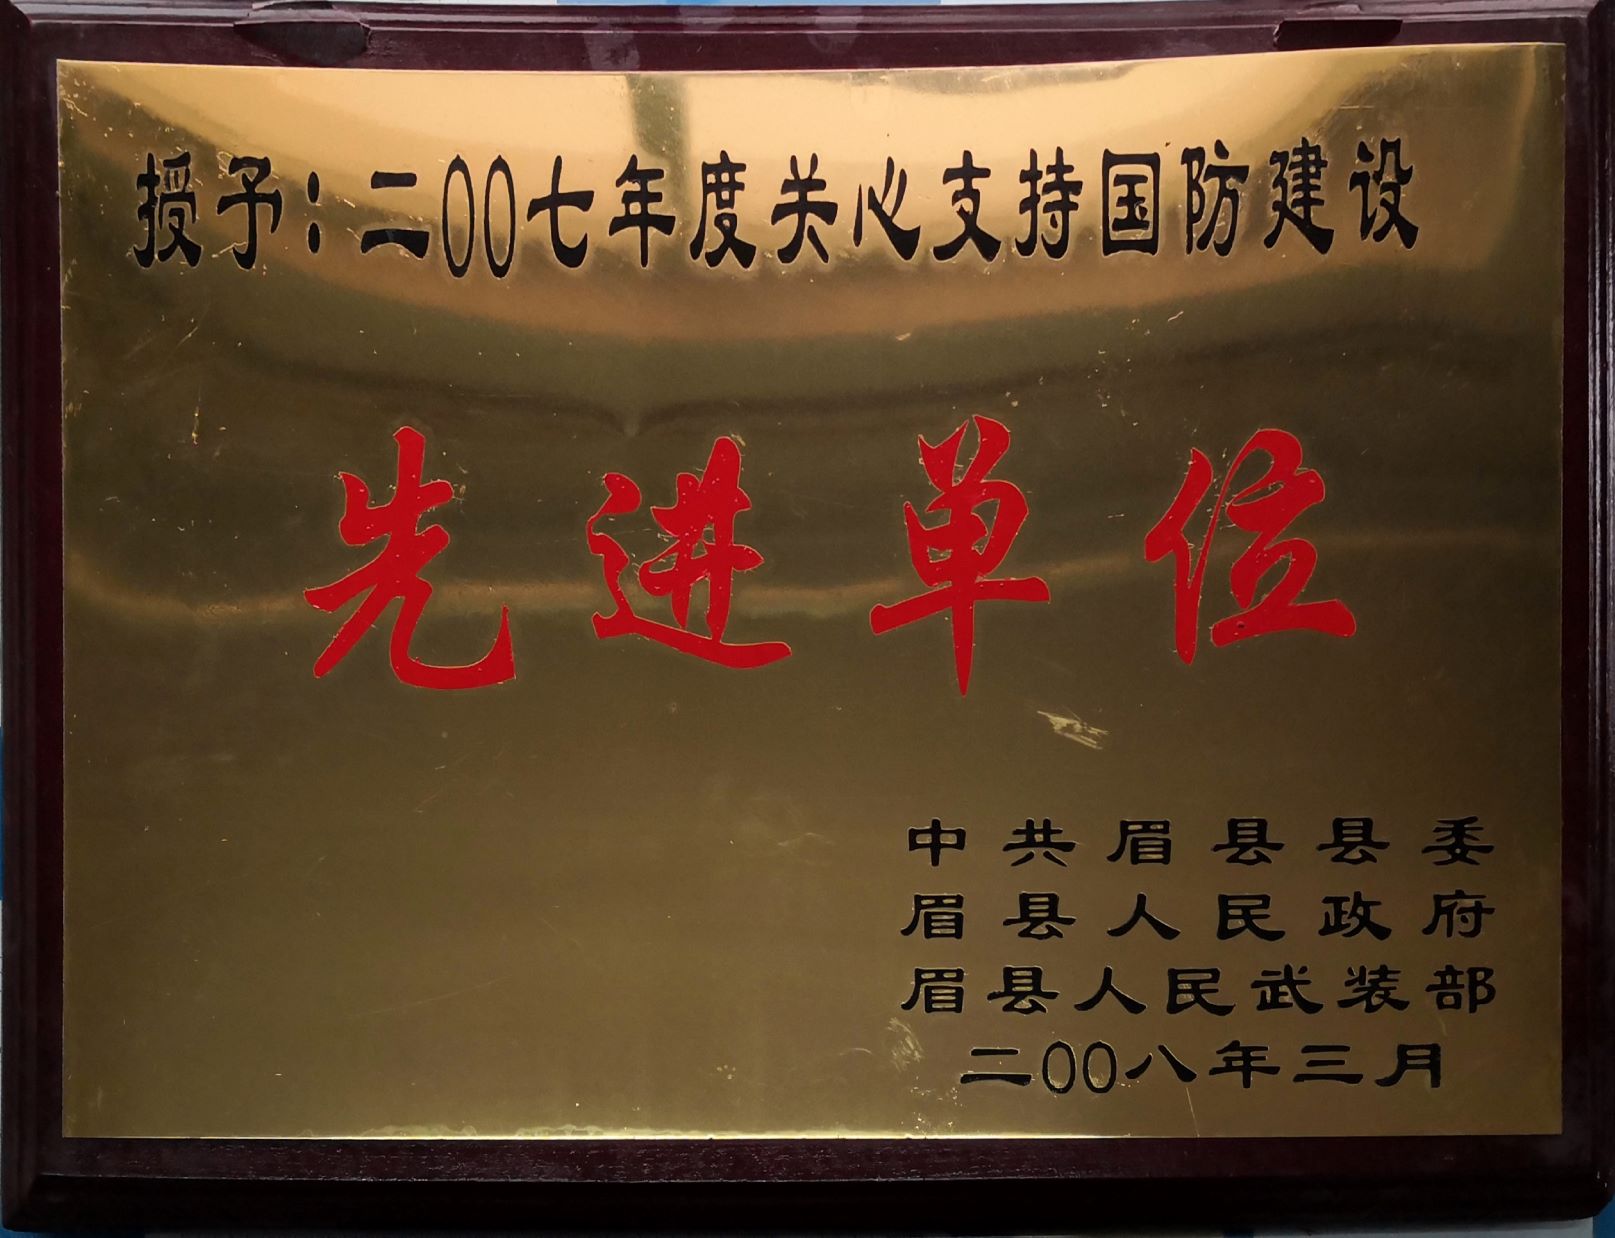 授予：二00七年度关心支持国防建设
先进单位
中共眉县县委
眉县人民政府
眉县人民武装部
二00八年三月